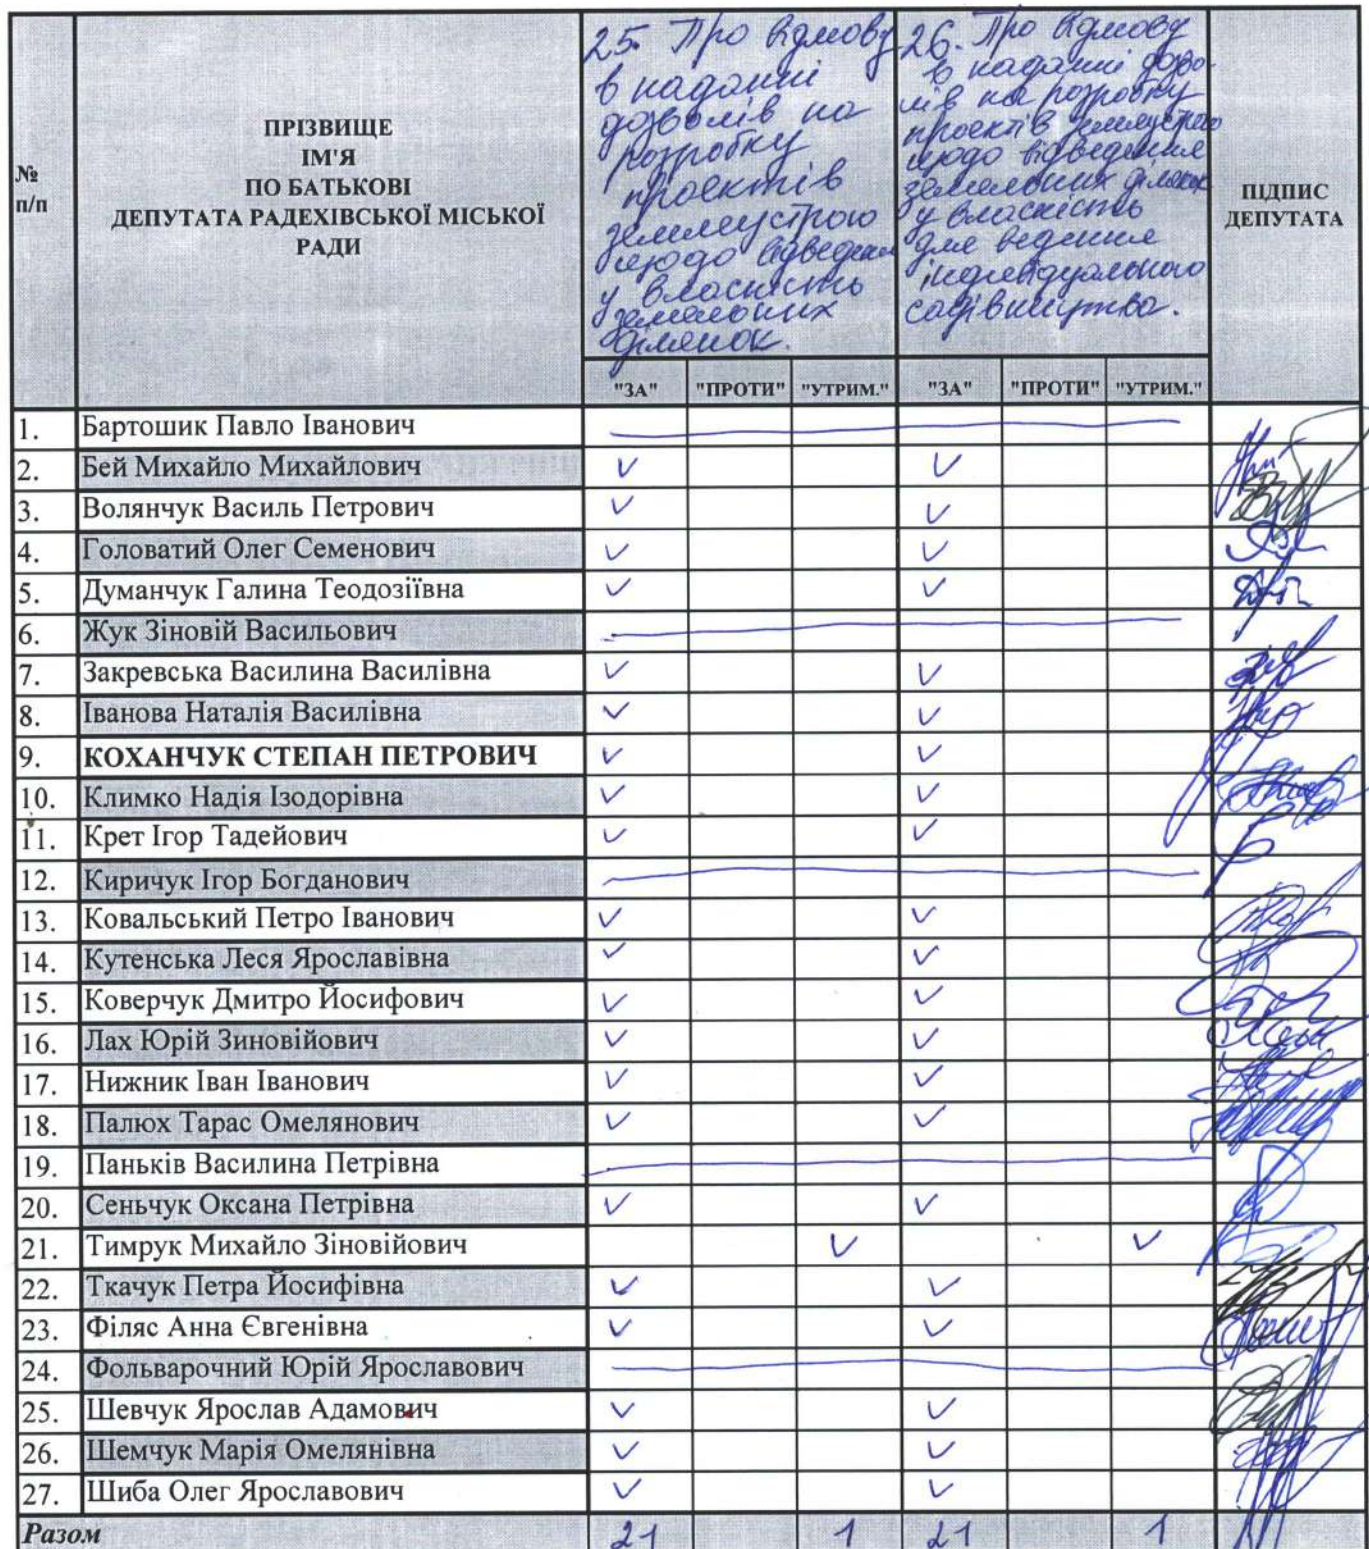 №
п/п
ПРІЗВИЩЕ
ІМ'Я
ПО БАТЬКОВІ
ДЕПУТАТА РАДЕХІВСЬКОЇ МІСЬКОЇ
РАДИ
25. Про відмову
в наданні
дозволів на
розробку
проектів
землеустрою
щодо відведення
у власність
земельних
ділянок.
26. Про відмову
в наданні дозво-
лів на розробку
проектів землеустрою
щодо відведення
земельних ділянок
у власність
для ведення
індивідуального
садівництва.
ПІДПИС
ДЕПУТАТА
"ЗА" "ПРОТИ" "УТРИМ." "ЗА" "ПРОТИ" "УТРИМ."
1. Бартошик Павло Іванович
2. Бей Михайло Михайлович V V
3. Волянчук Василь Петрович V V
4. Головатий Олег Семенович V V
5. Думанчук Галина Теодозіївна V V
6. Жук Зіновій Васильович
7. Закревська Василина Василівна V V
8. Іванова Наталія Василівна V V
9. КОХАНЧУК СТЕПАН ПЕТРОВИЧ V V
10. Климко Надія Ізодорівна V V
11. Крет Ігор Тадейович V V
12. Киричук Ігор Богданович
13. Ковальський Петро Іванович V V
14. Кутенська Леся Ярославівна V V
15. Коверчук Дмитро Йосифович V V
16. Лах Юрій Зиновійович V V
17. Нижник Іван Іванович V V
18. Палюх Тарас Омелянович V V
19. Паньків Василина Петрівна
20. Сеньчук Оксана Петрівна V V
21. Тимрук Михайло Зіновійович V V
22. Ткачук Петра Йосифівна V V
23. Філяс Анна Євгенівна V V
24. Фольварочний Юрій Ярославович
25. Шевчук Ярослав Адамович V V
26. Шемчук Марія Омелянівна V V
27. Шиба Олег Ярославович V V
Разом 21 1 21 1